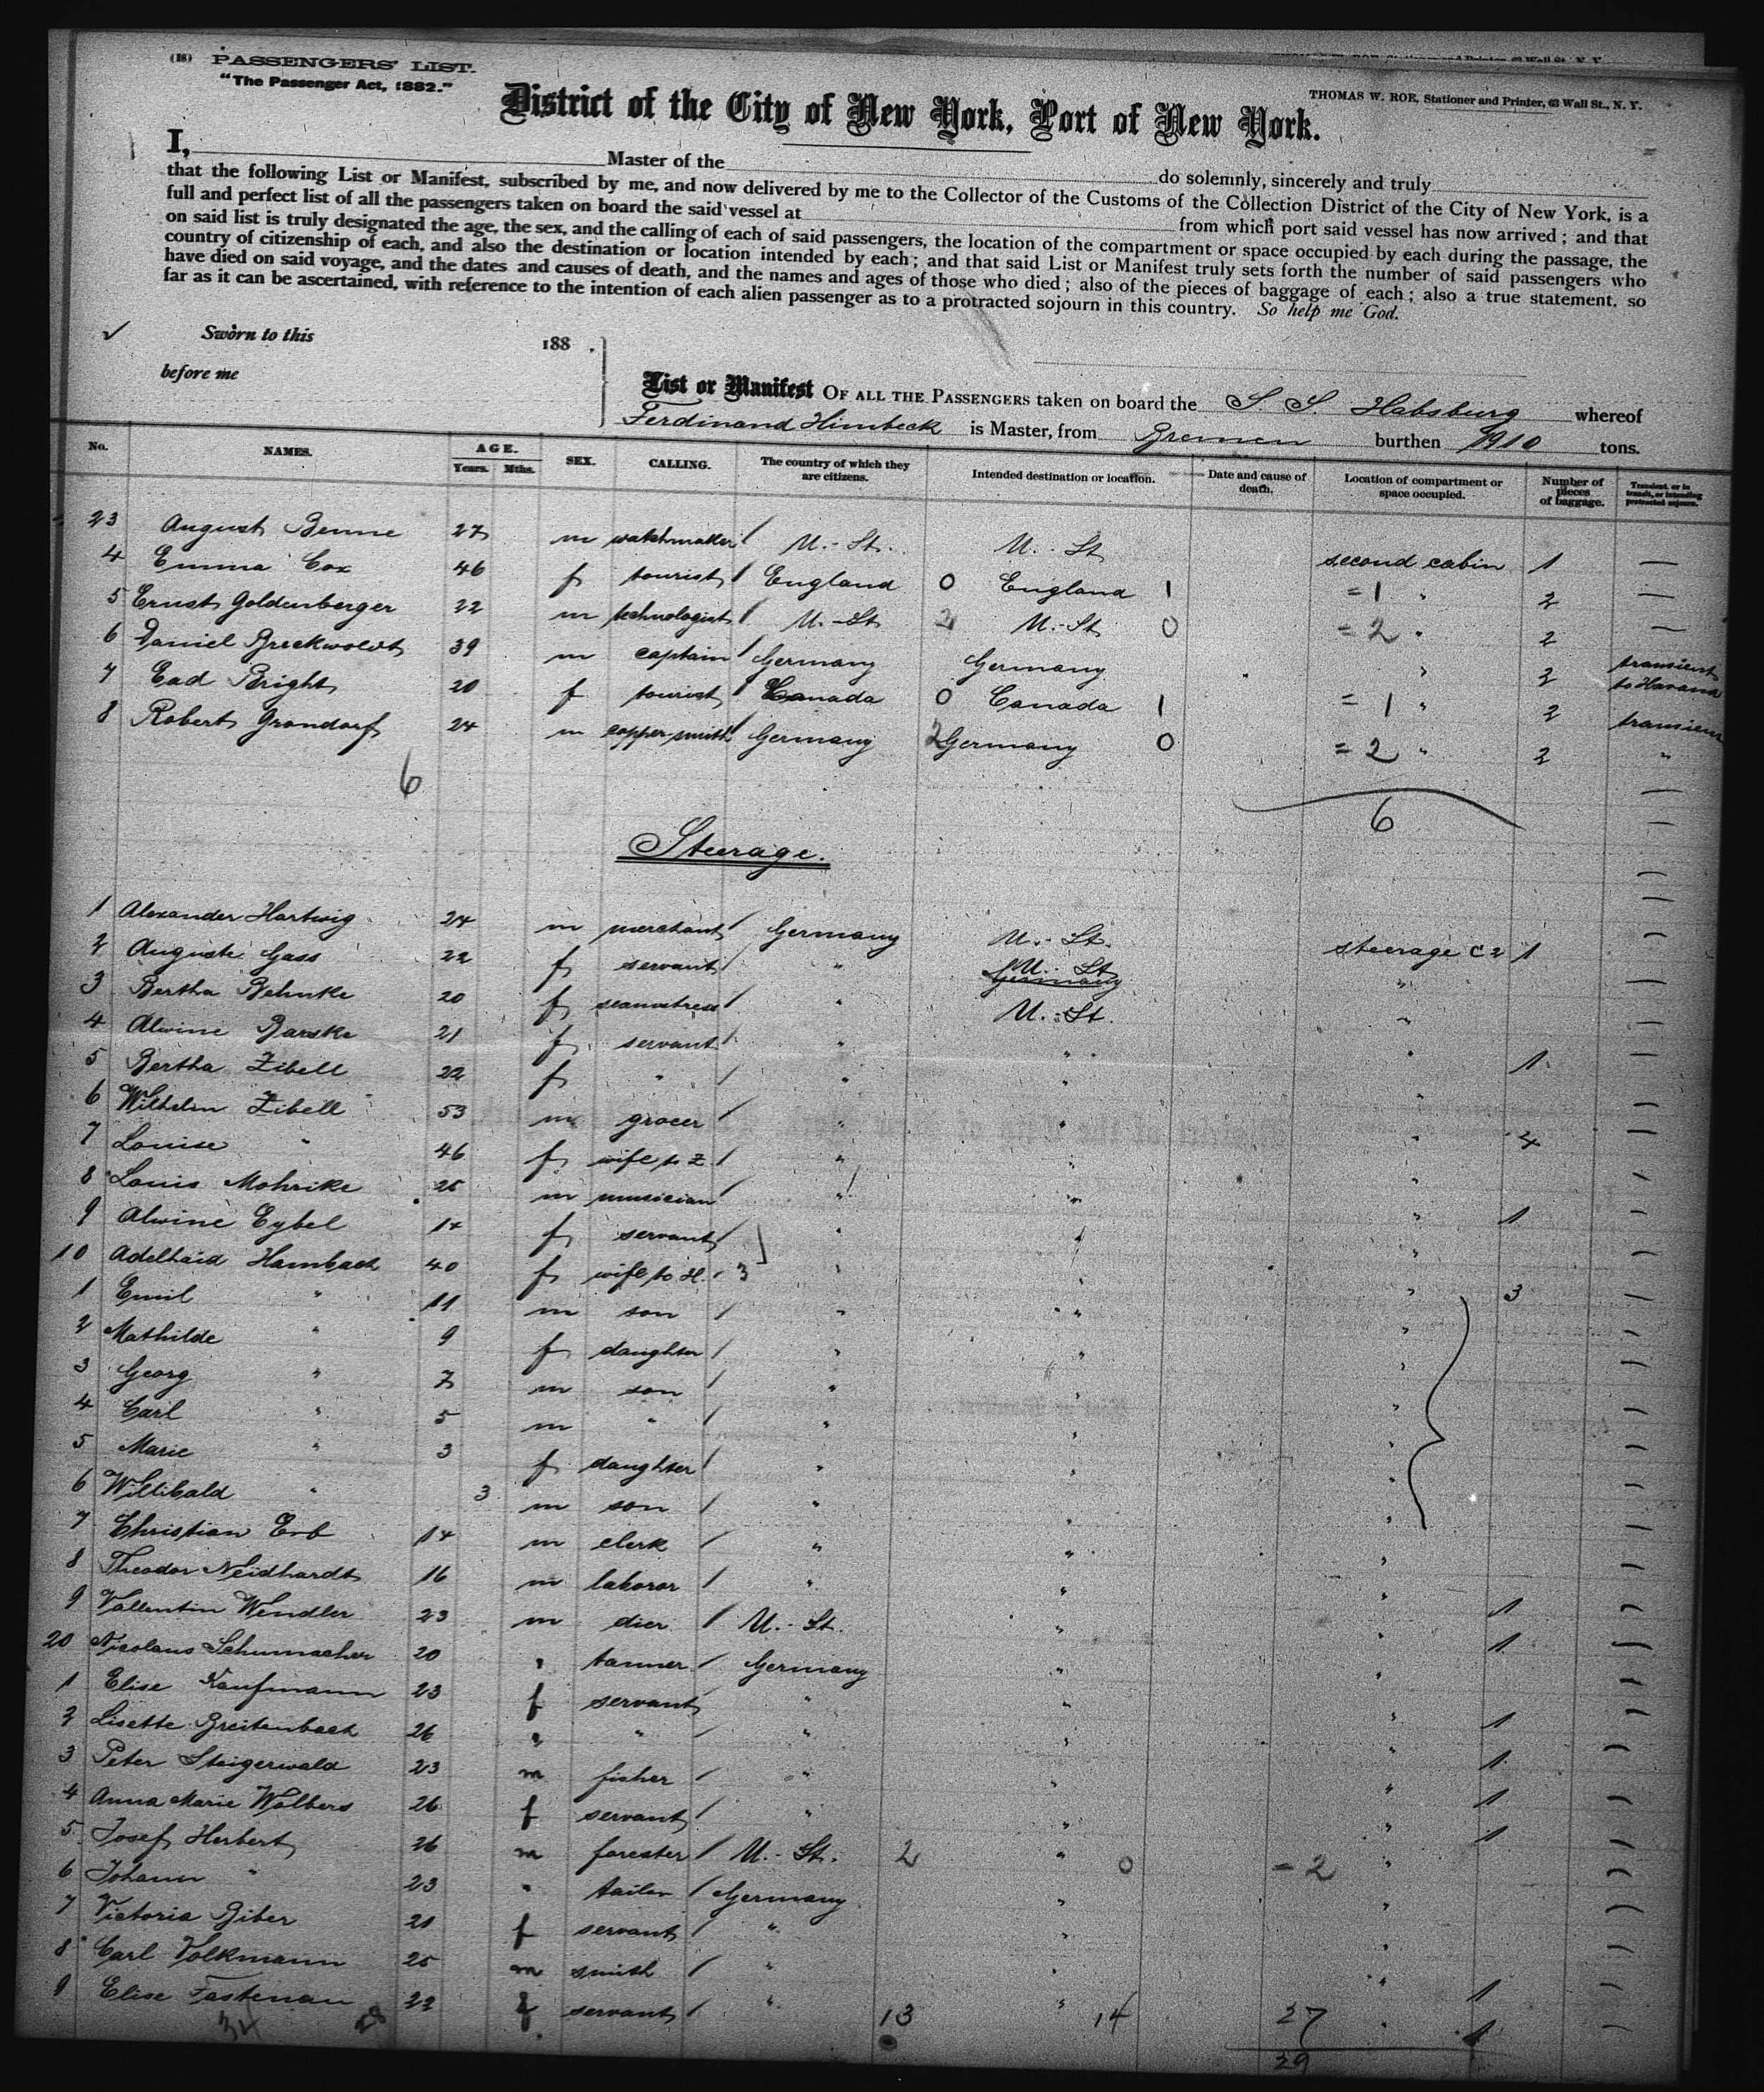 (18) PASSENGERS' LIST.
"The Passenger Act, 1882."
THOMAS W. ROE, Stationer and Printer, 63 Wall St., N. Y.
District of the City of New York, Port of New York.
I, Master of the do solemnly, sincerely and truly
that the following List or Manifest, subscribed by me, and now delivered by me to the Collector of the Customs of the Collection District of the City of New York, is a
full and perfect list of all the passengers taken on board the said vessel at from which port said vessel has now arrived; and that
on said list is truly designated the age, the sex, and the calling of each of said passengers, the location of the compartment or space occupied by each during the passage, the
country of citizenship of each, and also the destination or location intended by each; and that said List or Manifest truly sets forth the number of said passengers who
have died on said voyage, and the dates and causes of death, and the names and ages of those who died; also of the pieces of baggage of each; also a true statement, so
far as it can be ascertained, with reference to the intention of each alien passenger as to a protracted sojourn in this country. So help me God.
Sworn to this 188 .
before me
List or Manifest OF ALL THE PASSENGERS taken on board the S. S. Habsburg whereof
Ferdinand Himbeck is Master, from Bremen burthen 1910 tons.
No. NAMES. AGE. Years. Mths. SEX. CALLING. The country of which they are citizens. Intended destination or location. Date and cause of death. Location of compartment or space occupied. Number of pieces of baggage. Transient, or in transit, or intending protracted sojourn.
23 August Benne 27 m watchmaker U. St. U. St second cabin 1 —
4 Emma Cox 46 f tourist England 0 England 1 = 1 " 2 —
5 Ernst Goldenberger 22 m technologist U. St 2 U. St 0 = 2 " 2 —
6 Daniel Breckwoldt 39 m captain Germany Germany " 2 transient to Havana
7 Ead Bright 20 f tourist Canada 0 Canada 1 = 1 " 2 transient
8 Robert Grondorf 24 m copper-smith Germany 2 Germany 0 = 2 " 2 "
6 6
Steerage.
1 Alexander Hartwig 24 m merchant Germany U. St. steerage C 2 1
2 Auguste Gass 22 f servant " U. St Germany "
3 Bertha Behnke 20 f seamstress " U. St. "
4 Alwine Barske 21 f servant " " " 1
5 Bertha Zibell 22 f " " " "
6 Wilhelm Zibell 53 m grocer " " " 4
7 Louise " 46 f wife to Z. " " "
8 Louis Mohrike 25 m musician " " " 1
9 Alwine Eybel 14 f servant " " "
10 Adelhaid Hambach 40 f wife to H. 3 " " " 3
1 Emil " 11 m son " " "
2 Mathilde " 9 f daughter " " "
3 Georg " 7 m son " " "
4 Carl " 5 m " " " "
5 Marie " 3 f daughter " " "
6 Willibald " 3 m son " " "
7 Christian Erb 14 m clerk " " "
8 Theodor Neidhardt 16 m laboror " " " 1
9 Vallentin Wendler 23 m dier U. St. " " 1
20 Nicolaus Schumacher 20 " tanner Germany " "
1 Elise Kaufmann 23 f servant " " " 1
2 Lisette Breitenbach 26 " " " " " 1
3 Peter Steigerwald 23 m fisher " " " 1
4 Anna Marie Wolbers 26 f servant " " " 1
5 Josef Herbert 26 m forester U. St. 2 " 0 = 2 "
6 Johann " 23 " tailor Germany " "
7 Victoria Biber 21 f servant " " "
8 Carl Volkmann 25 m smith " " " 1
9 Elise Fastenau 22 f servant " " " 1
34 28 13 14 27
29